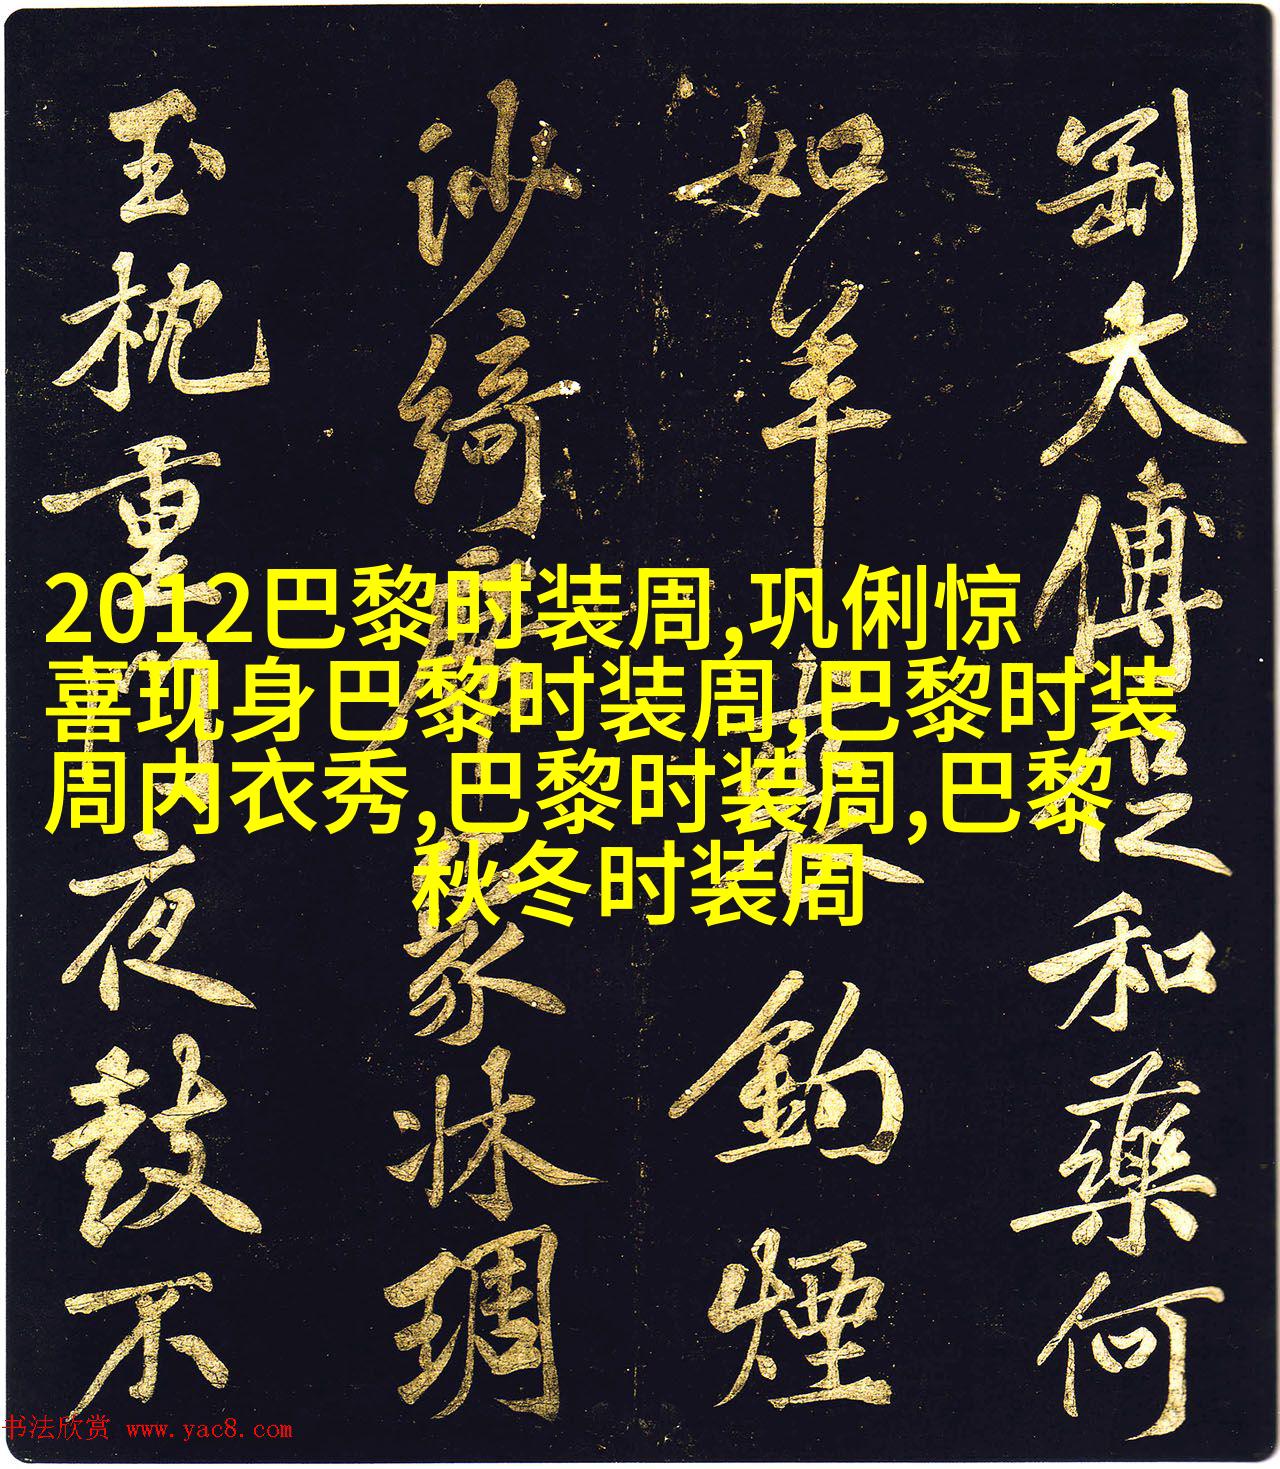 太傅和藥何
如羊鉤煙
沙綺席象牀琱
玉枕重門夜鼓不
2012巴黎时装周,巩俐惊
喜现身巴黎时装周,巴黎时装
周内衣秀,巴黎时装周,巴黎
秋冬时装周
书法欣赏 www.yac8.com